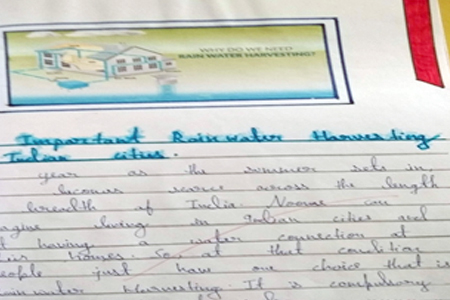 WHY DO WE NEED
RAIN WATER HARVESTING?
Important Rain water Harvesting
Indian cities.
year as the summer sets in
becomes scarce across the length
breadth of India. Noone can
agine living in Indian cities and
t having a water connection at
eir homes. So, at that condition
eople just have one choice that is
ain water Harvesting. It is compulsory